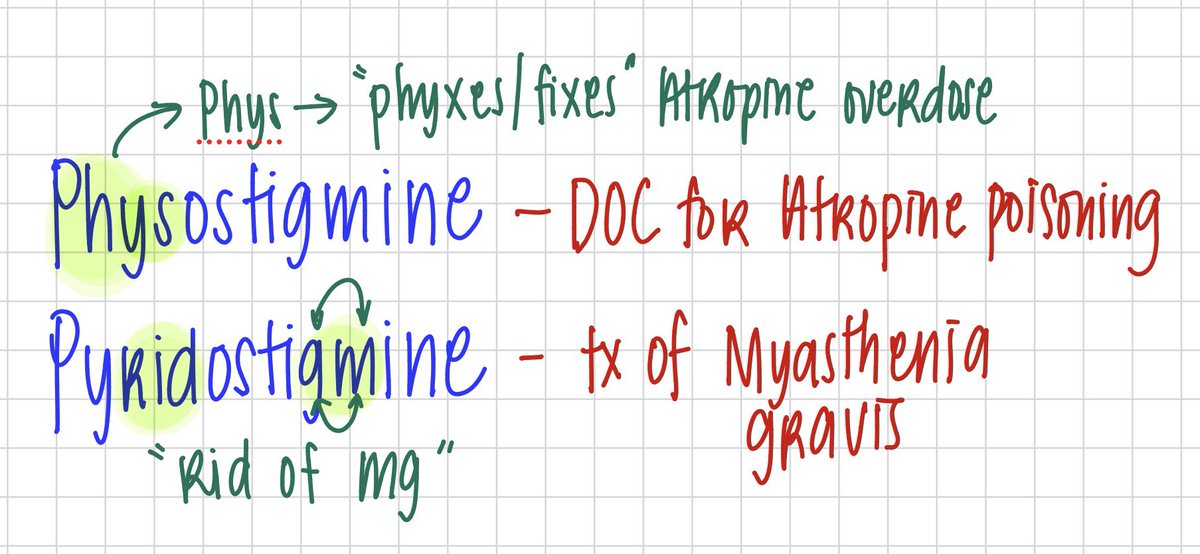 Phys → "phyxes/fixes" Atropine overdose
Physostigmine - DOC for Atropine poisoning
Pyridostigmine - tx of Myasthenia
gravis
"Rid of mg"